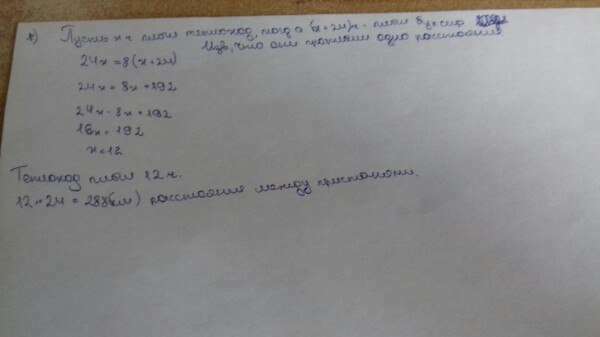 Пусть х ч плыл теплоход, тогда (х+24)ч - плыл
Изв, что они проплыли одно расстояние
24х = 8(х+24)
24х = 8х + 192
24х - 8х = 192
16х = 192
х = 12
Теплоход плыл 12 ч.
12 * 24 = 288(км) расстояние между пристанями.